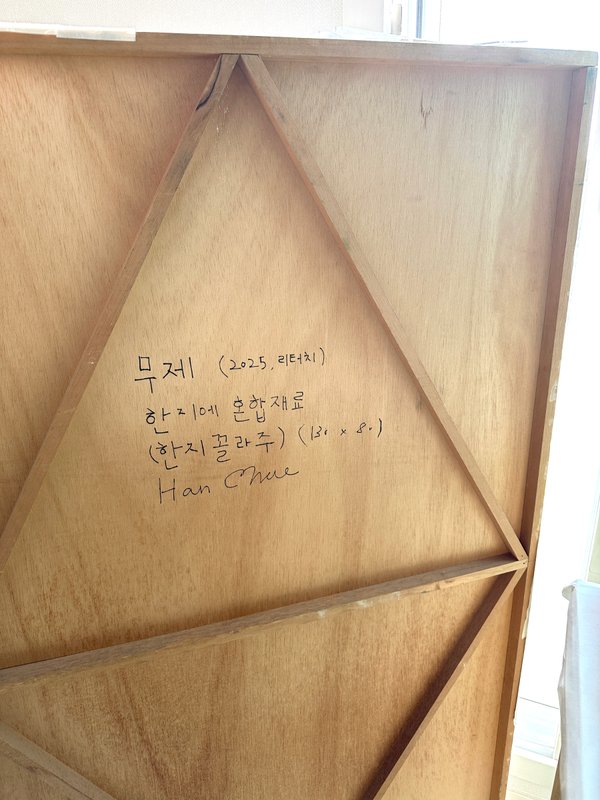 무제 (2025, 리터치)
한지에 혼합재료
(한지꼴라주) (130 x 80)
Han